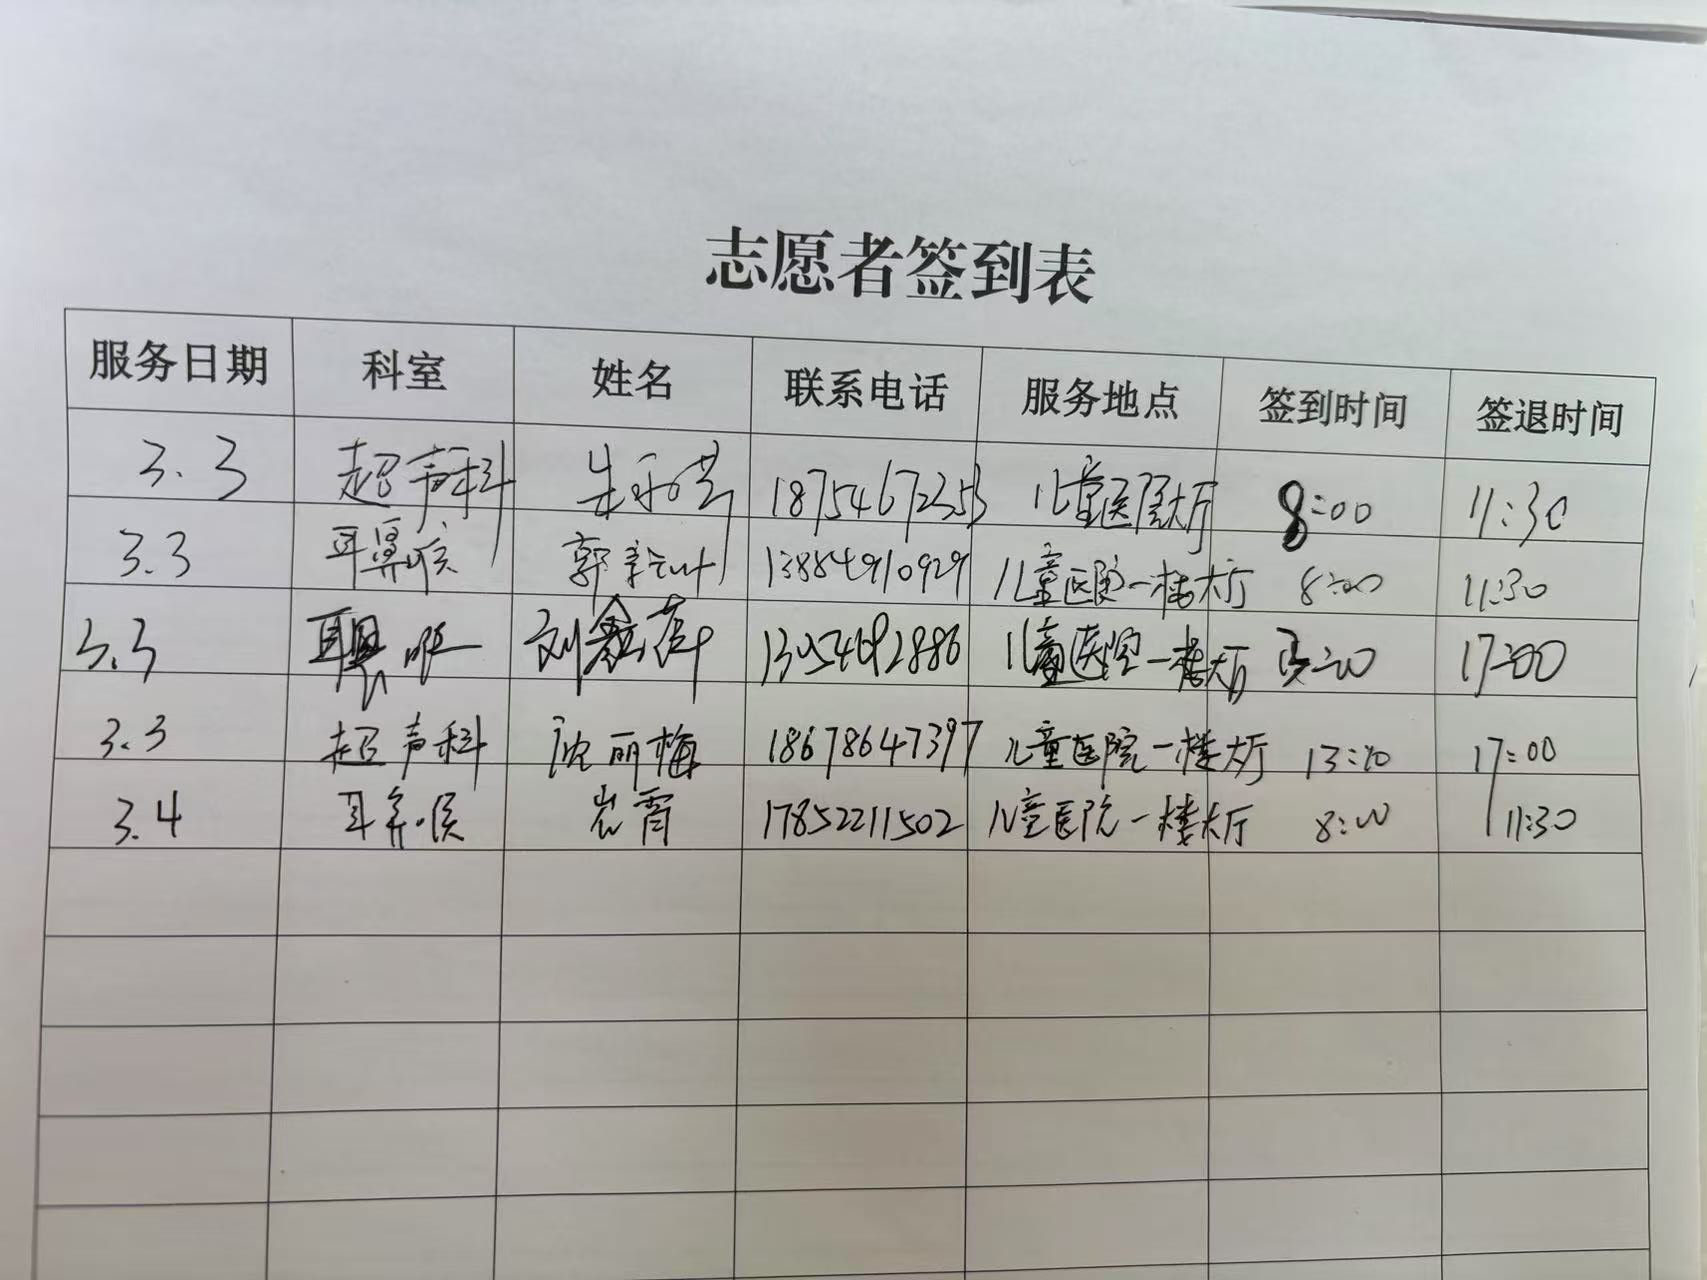 志愿者签到表
服务日期 科室 姓名 联系电话 服务地点 签到时间 签退时间
3.3 超声科 朱 18754672353 儿童医院大厅 8:00 11:30
3.3 耳鼻喉 郭 13884910929 儿童医院一楼大厅 8:00 11:30
3.3 耳鼻喉 刘鑫萍 儿童医院一楼大厅 17:00
3.3 超声科 沈丽梅 18678647397 儿童医院一楼大厅 17:00
3.4 耳鼻喉 17852211502 儿童医院一楼大厅 8:00 11:30